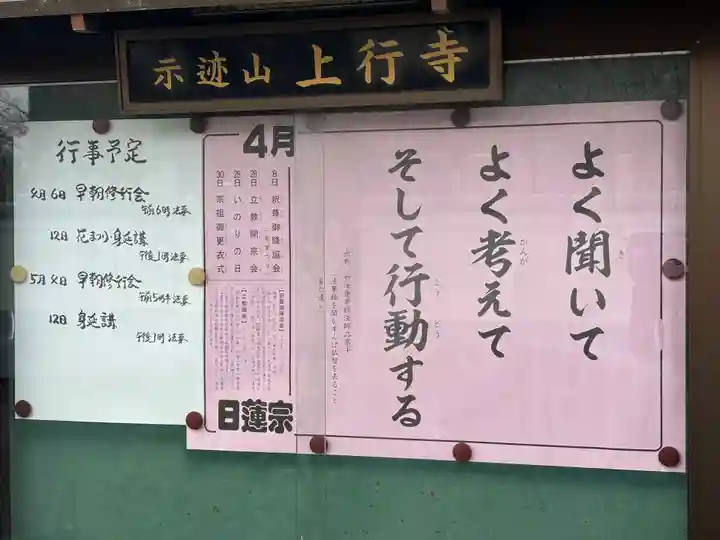 示迹山 上行寺
よく聞いて
き
よく考えて
かんが
そして行動する
こう どう
4月
8日 釈尊御降誕会
28日 立教開宗会
28日 いのりの日
30日 宗祖御更衣式
日蓮宗
行事予定
4月6日 早朝修行会
午前6時法要
12日 花まつり身延講
午後1時法要
5月4日 早朝修行会
午前5時半法要
12日 身延講
午後1時法要